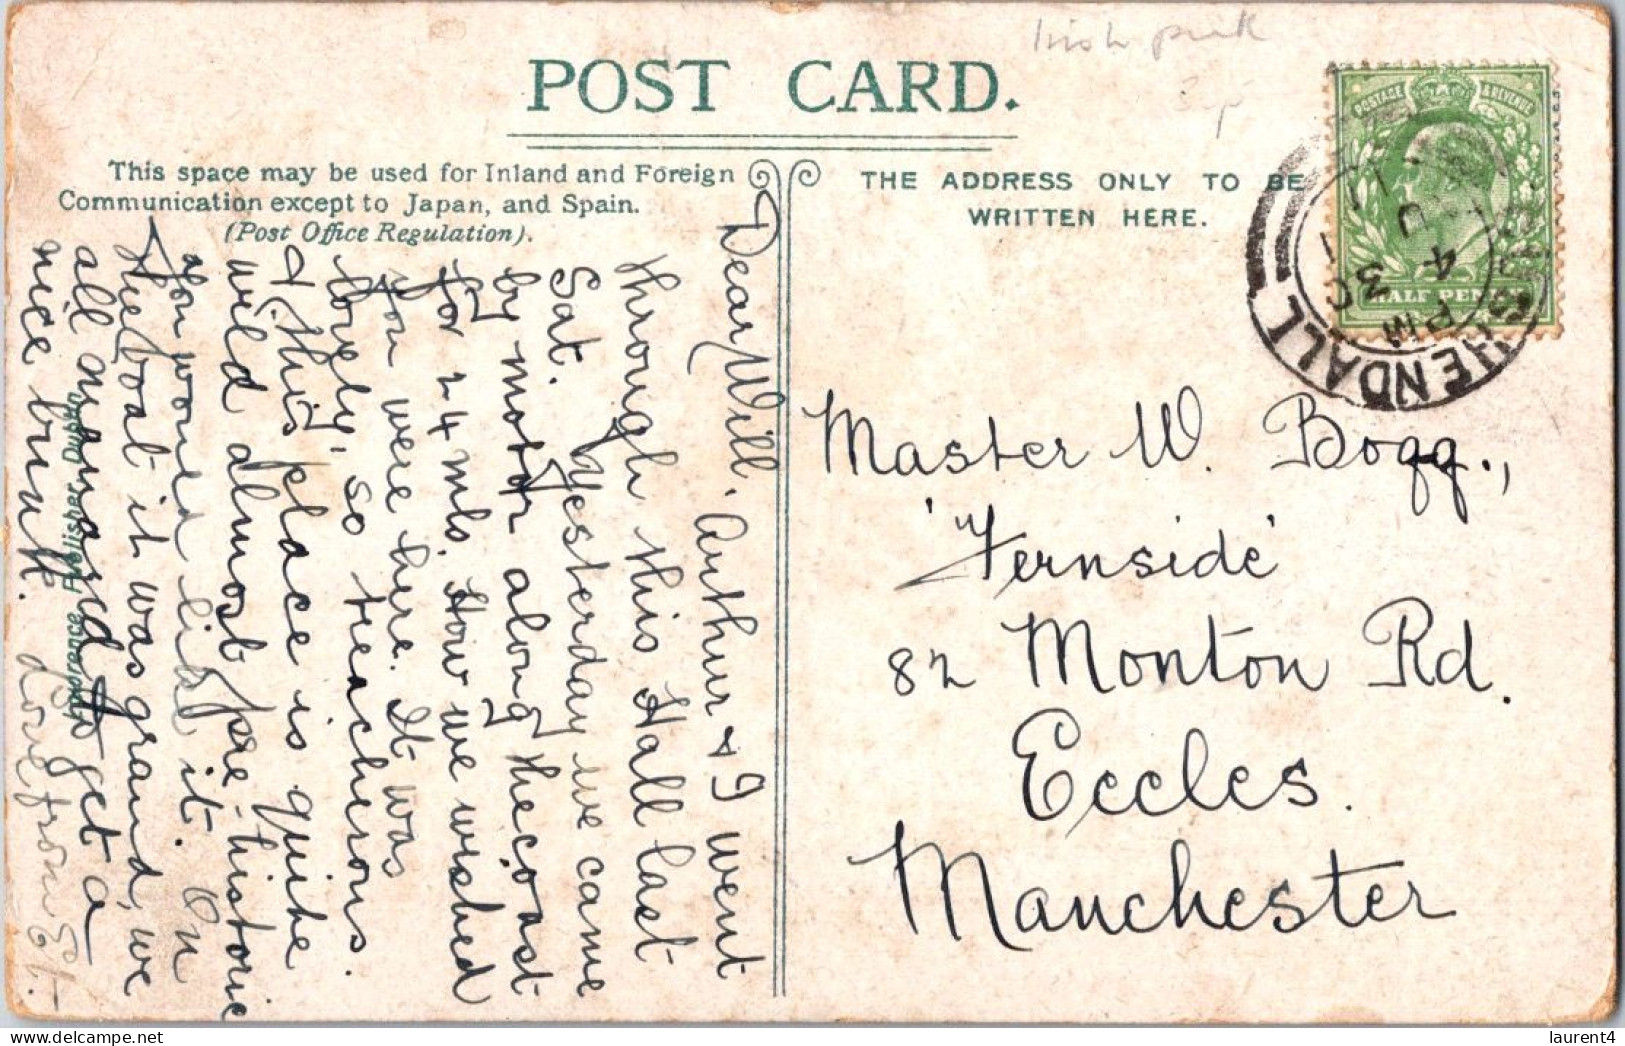 Irish
3p
POST CARD.
This space may be used for Inland and Foreign
Communication except to Japan, and Spain.
(Post Office Regulation).
THE ADDRESS ONLY TO BE
WRITTEN HERE.
POSTAGE & REVENUE
HALF PENNY
HENDALL
4 30 PM
Dear Will. Arthur & I went
through this Hall last
Sat. Yesterday we came
by motor along the coast
for 24 mls. How we wished
you were here. It was
lovely, so treacherous.
& this place is quite
wild almost pre-historic
You would like it. On
the boat it was grand, we
all managed to get a
nice bunk. Love from Et.
Master W. Bogg.,
'Fernside'
82 Monton Rd.
Eccles.
Manchester
laurent4